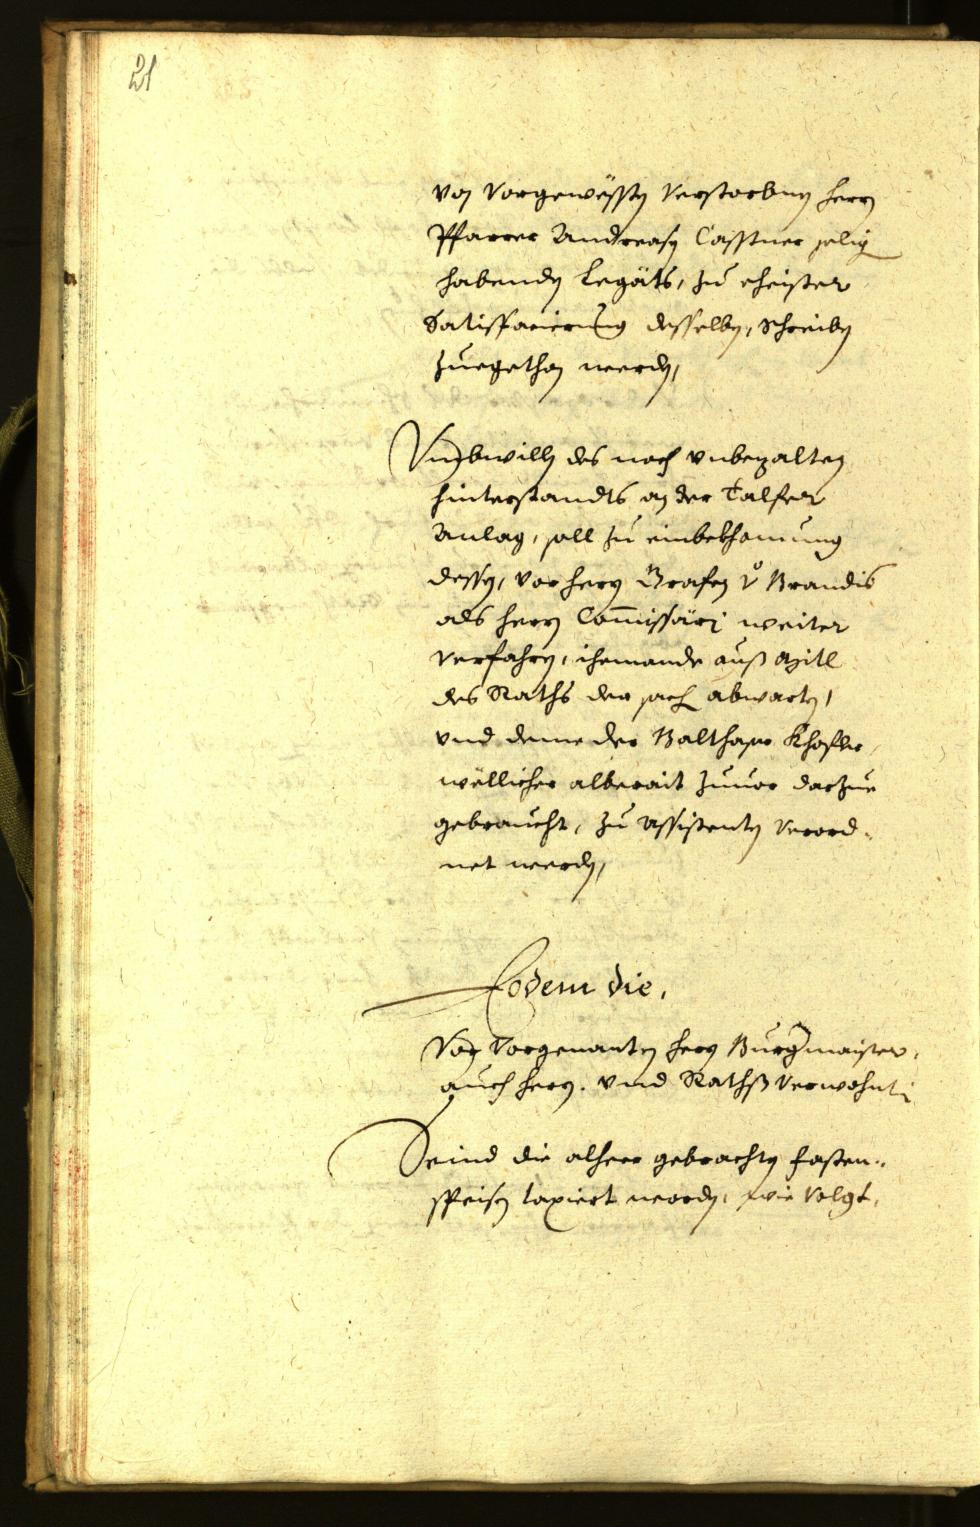 21
von vorgewesten verstorbnen herrn
Pfarrer Andreasn Casstner selig
habenden Legäts, zu eheister
Satisfacierung desselben, schreiben
zuegethon werden,
Umbwillen des noch unbezalten
hinterstandts an der Talfer
Anlag, soll zu einbekhomung
dessen, vor herrn Grafen v Brandis
als herrn Commissari weiter
verfahrn, iemande auß mitl
des Raths der sach abwarten,
und deme der Balthasar Khofler
wellicher alberait zuuor darzue
gebraucht, zu Assistenten verord-
net werden,
Eodem die,
Von Vorgenanten herrn Burgmaister,
auch herrn. und Rathß verwohnte
Seind die alheer gebrachten fasten-
speisen taxiert worden, wie volgt,